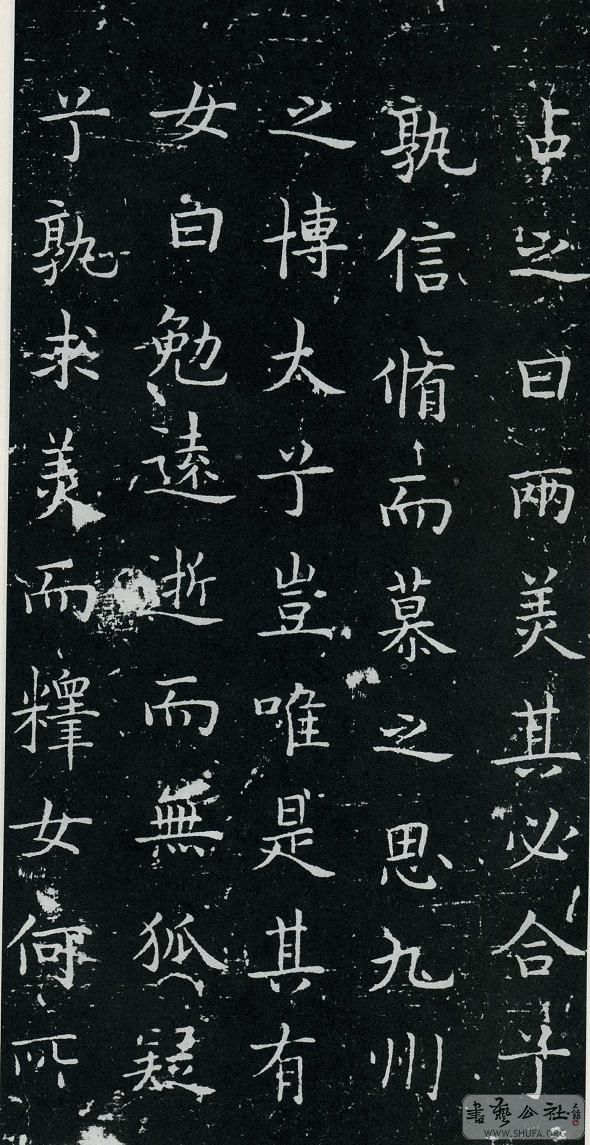 占之曰兩美其必合兮
孰信脩而慕之思九州
之博大兮豈唯是其有
女曰勉遠逝而無狐疑
兮孰求美而釋女何所
書藝公社
WWW.SHUFA.ORG